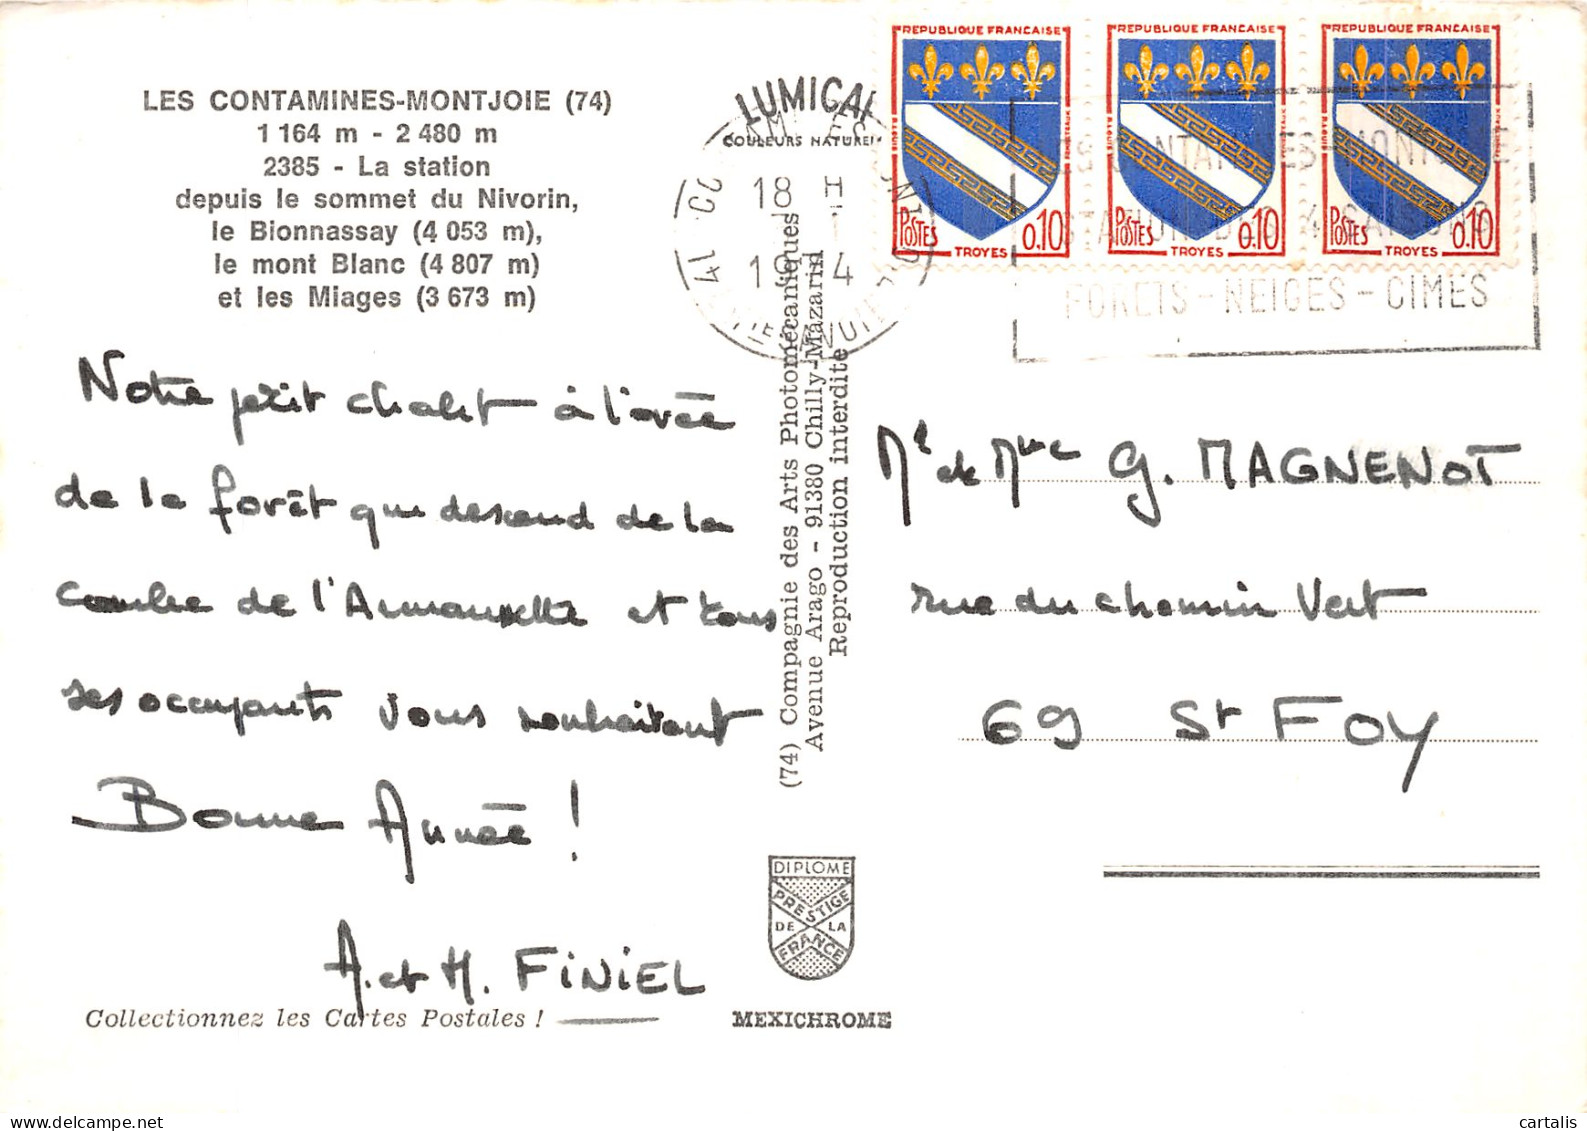 LES CONTAMINES-MONTJOIE (74)
1 164 m - 2 480 m
2385 - La station
depuis le sommet du Nivorin,
le Bionnassay (4 053 m),
le mont Blanc (4 807 m)
et les Miages (3 673 m)
Notre p'tit chalet à l'orée
de la forêt qui descend de la
combe de l'Armancette et tous
ses occupants vous souhaitent
Bonne Année !
A. et H. FINIEL
Collectionnez les Cartes Postales !
LUMICAP
COULEURS NATUREL
18 H
19 4
(74) Compagnie des Arts Photomécaniques
Avenue Arago - 91380 Chilly-Mazarin
Reproduction interdite
DIPLOME
PRESTIGE
DE LA
FRANCE
MEXICHROME
REPUBLIQUE FRANCAISE
POSTES 0.10
TROYES
REPUBLIQUE FRANCAISE
POSTES 0.10
TROYES
REPUBLIQUE FRANCAISE
POSTES 0.10
TROYES
FORETS - NEIGES - CIMES
Mr de Mme G. MAGNENOT
rue du chemin Vert
69 St FOY
delcampe.net
cartalis